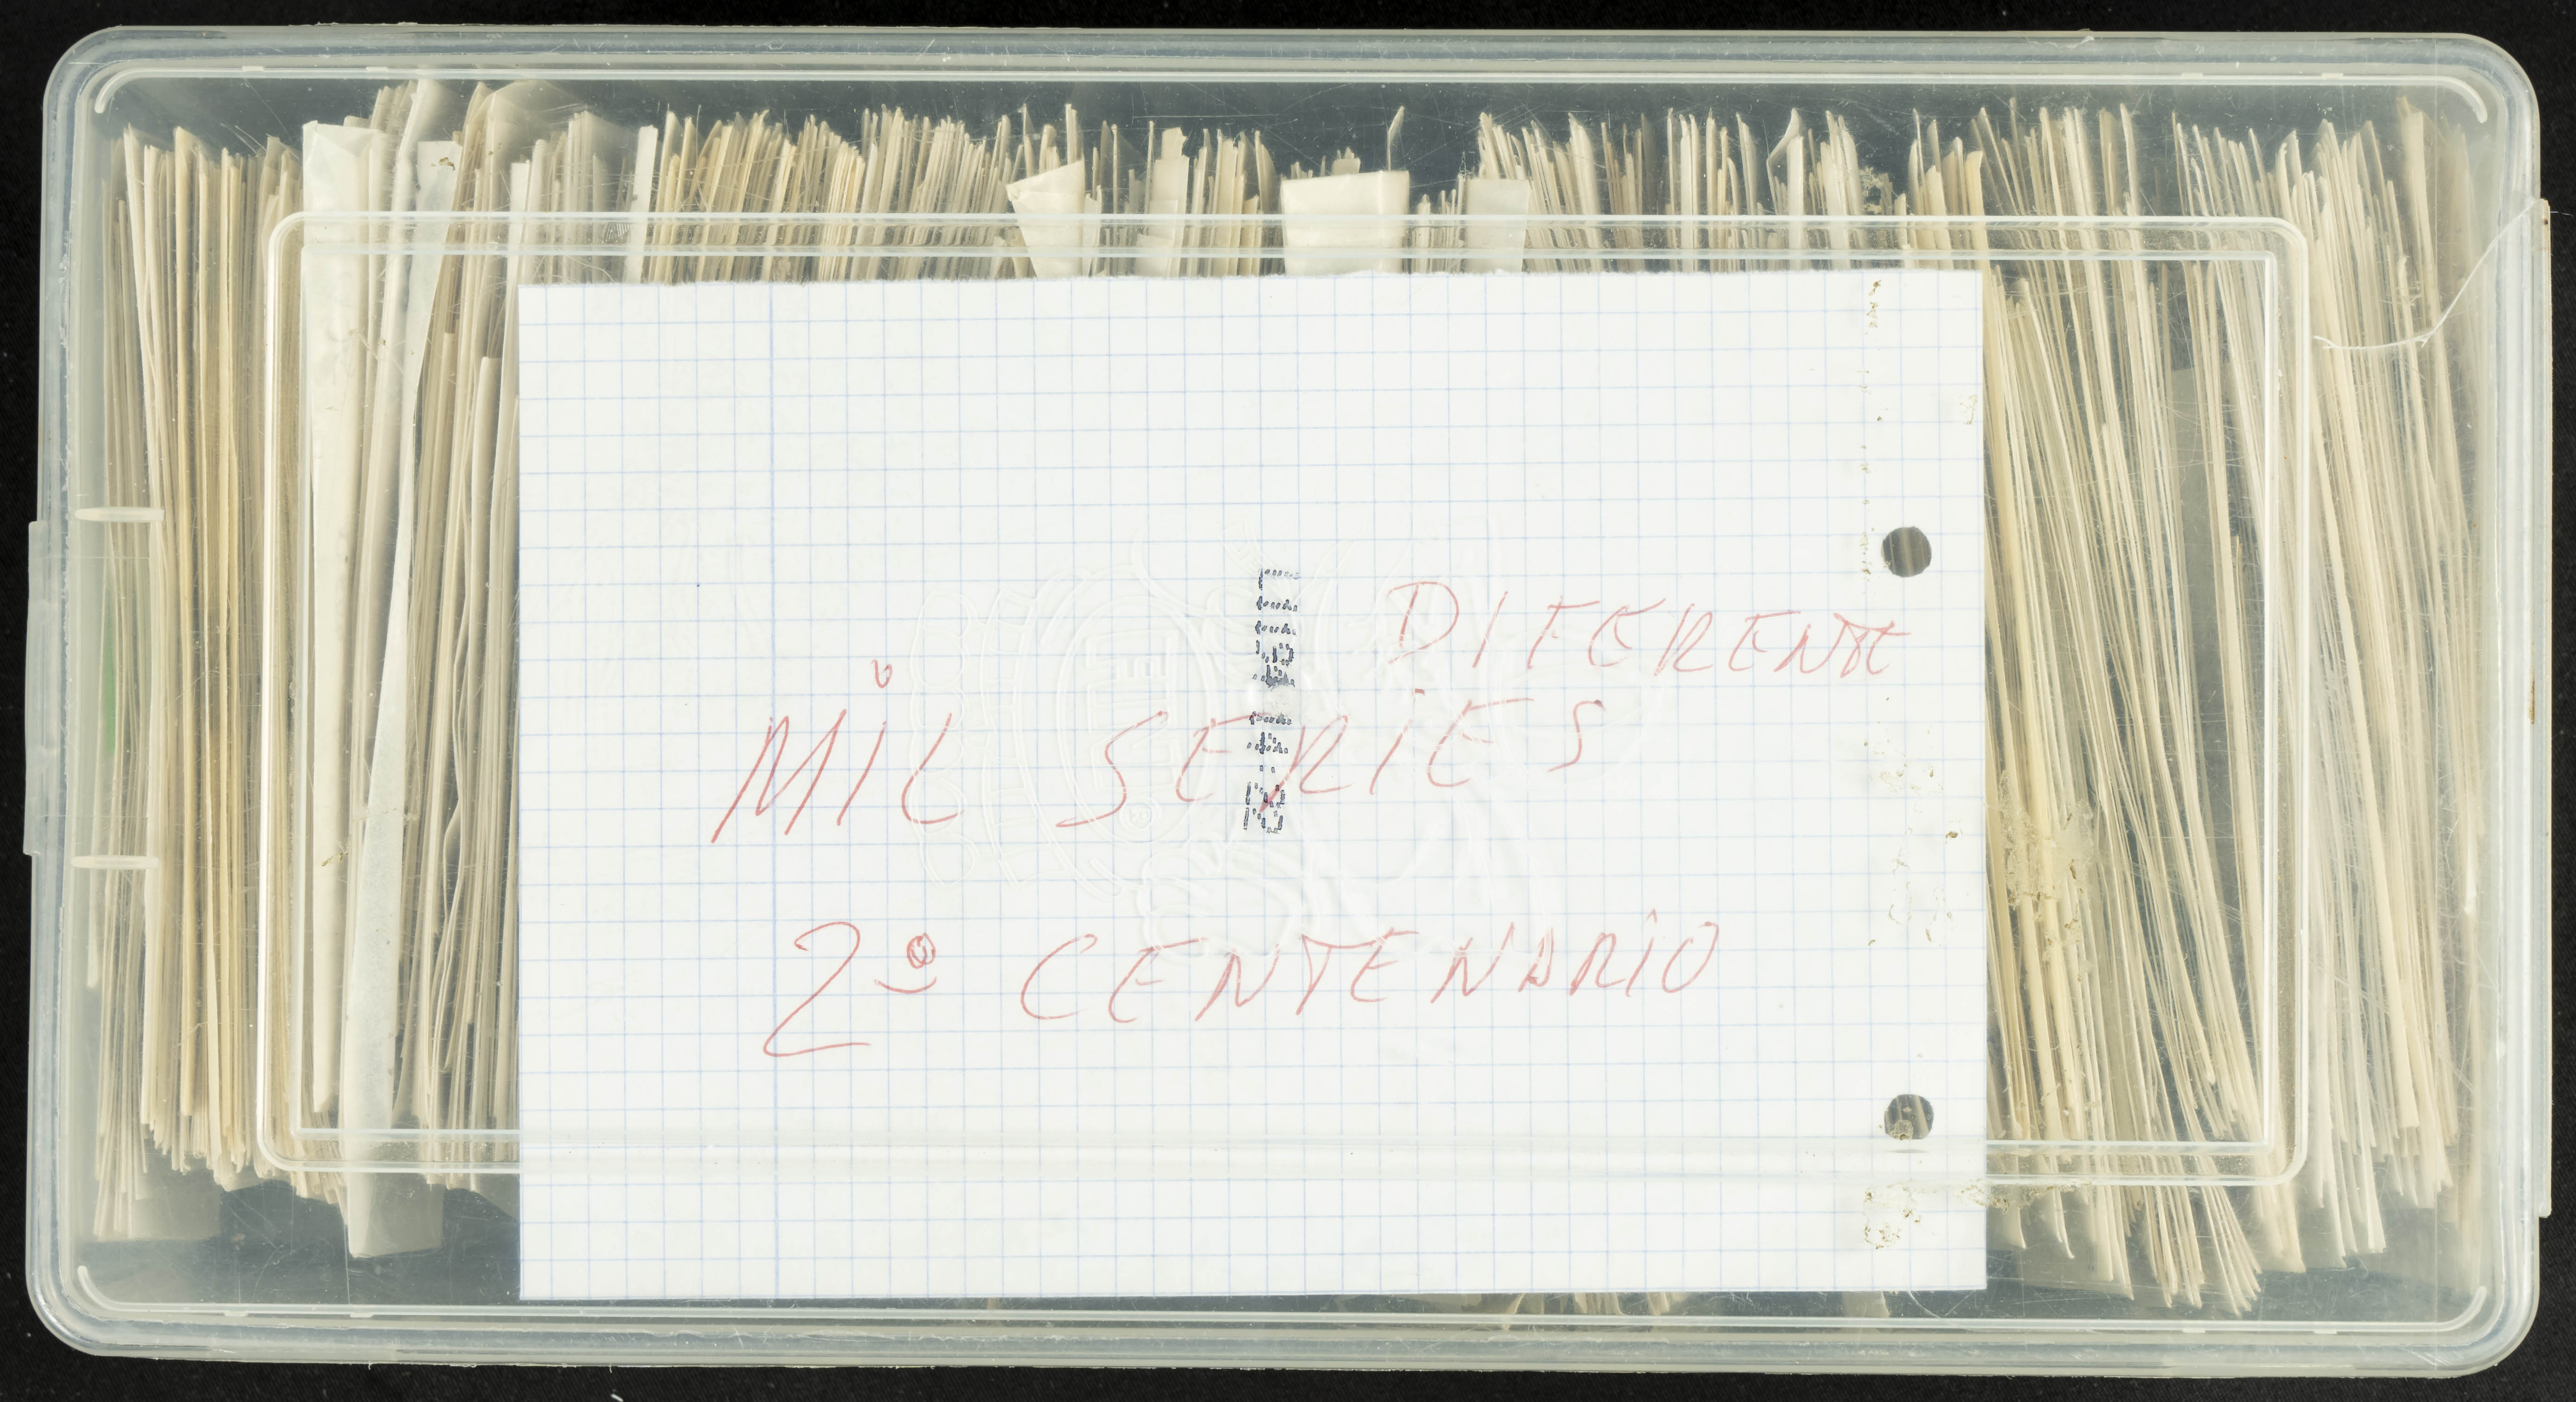 DIFERENTE
MIL SERIES
2º CENTENARIO